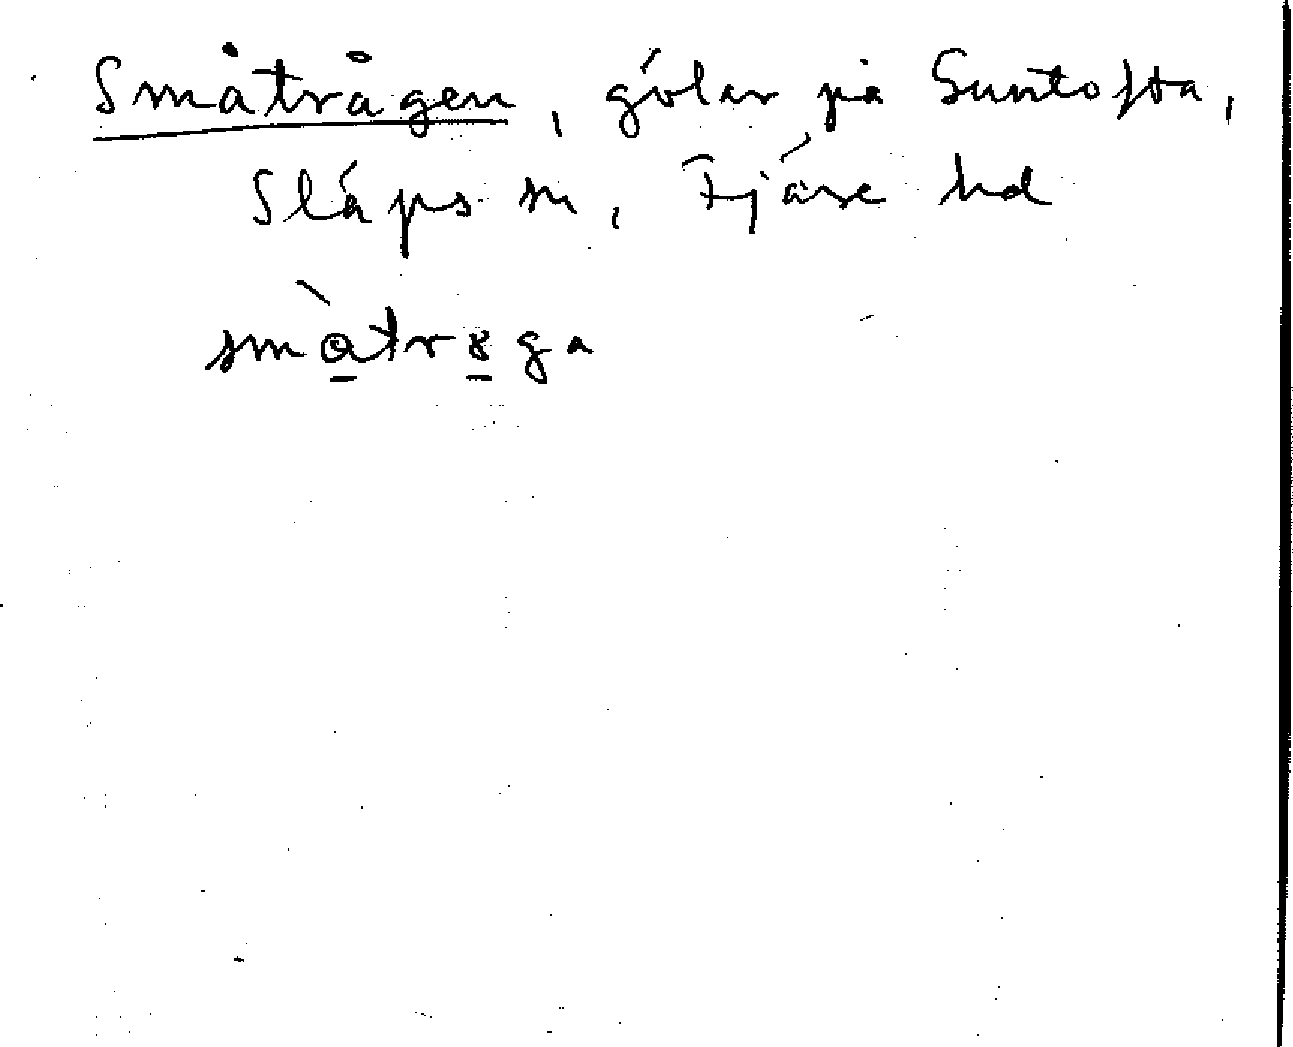 Småtrågen, gölar på Suntofta,
Släps sn, Fjäre hd
smàtrȣga